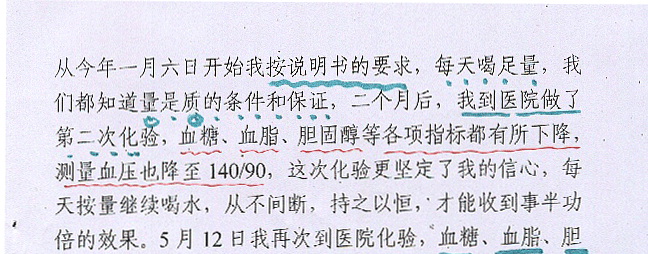 从今年一月六日开始我按说明书的要求，每天喝足量，我
们都知道量是质的条件和保证，二个月后，我到医院做了
第二次化验，血糖、血脂、胆固醇等各项指标都有所下降，
测量血压也降至 140/90，这次化验更坚定了我的信心，每
天按量继续喝水，从不间断，持之以恒，才能收到事半功
倍的效果。5 月 12 日我再次到医院化验，血糖、血脂、胆